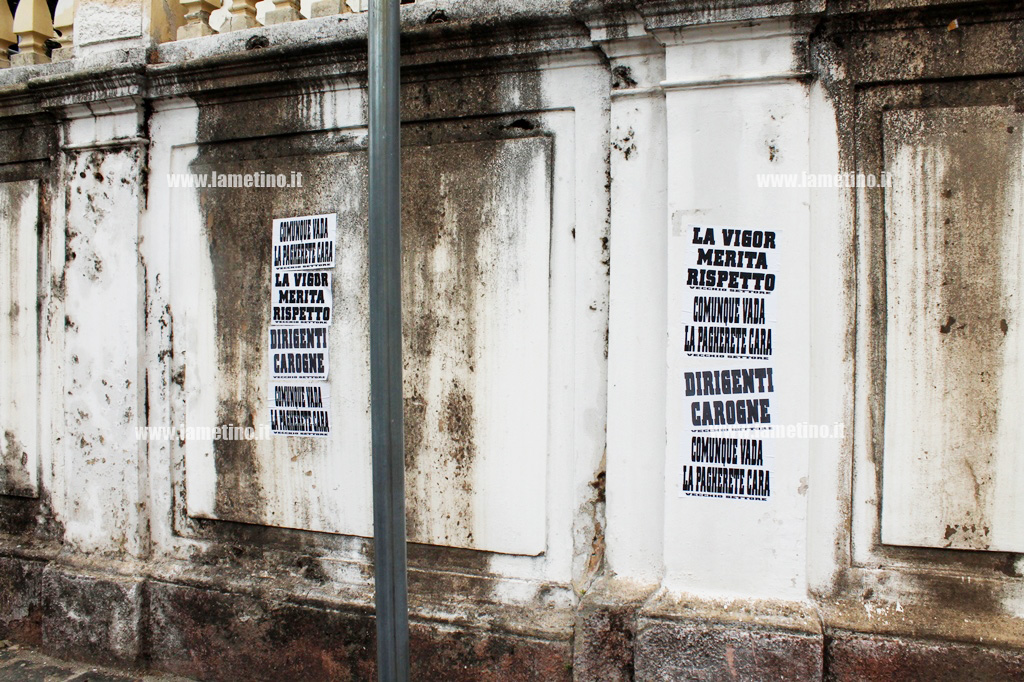 www.lametino.it
www.lametino.it
COMUNQUE VADA
LA PAGHERETE CARA
VECCHIO SETTORE
LA VIGOR
MERITA
RISPETTO
VECCHIO SETTORE
DIRIGENTI
CAROGNE
VECCHIO SETTORE
COMUNQUE VADA
LA PAGHERETE CARA
VECCHIO SETTORE
LA VIGOR
MERITA
RISPETTO
VECCHIO SETTORE
COMUNQUE VADA
LA PAGHERETE CARA
VECCHIO SETTORE
DIRIGENTI
CAROGNE
VECCHIO SETTORE
COMUNQUE VADA
LA PAGHERETE CARA
VECCHIO SETTORE
www.lametino.it
www.lametino.it